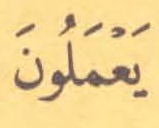 يَعْمَلُونَ